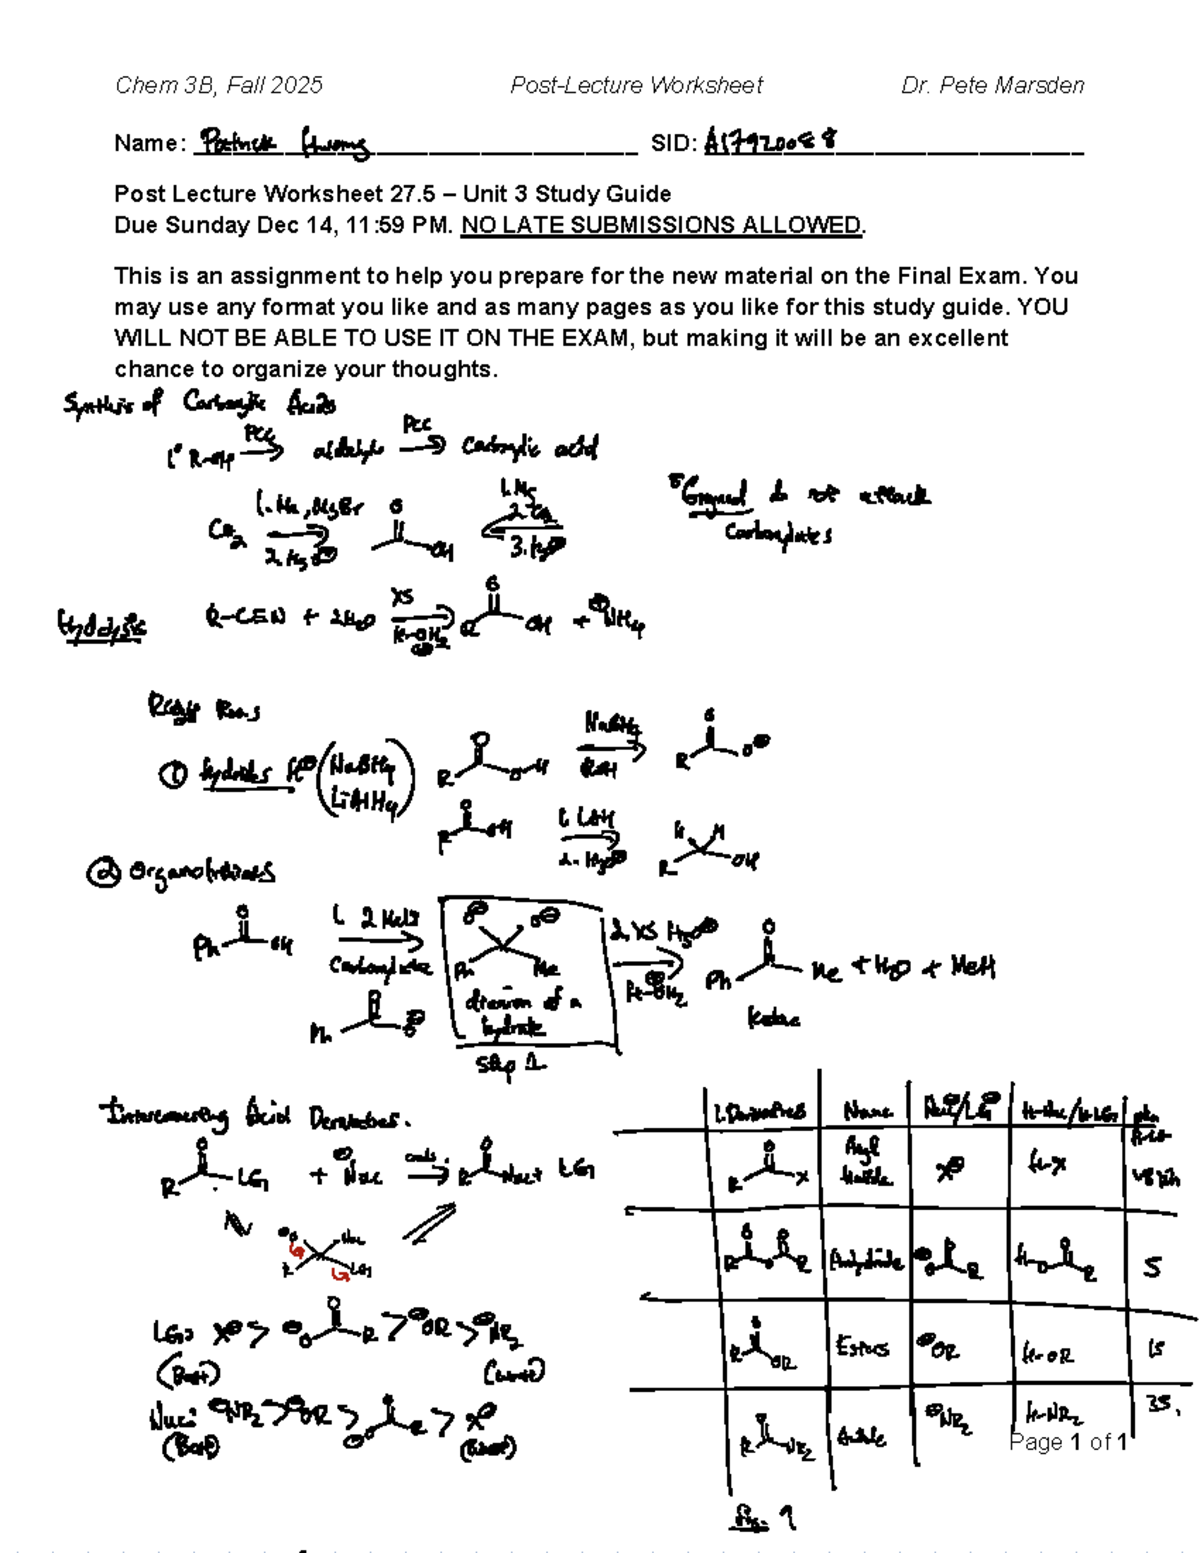 Chem 3B, Fall 2025 Post-Lecture Worksheet Dr. Pete Marsden
Name: Patrick SID: A17920088
Post Lecture Worksheet 27.5 – Unit 3 Study Guide
Due Sunday Dec 14, 11:59 PM. NO LATE SUBMISSIONS ALLOWED.
This is an assignment to help you prepare for the new material on the Final Exam. You
may use any format you like and as many pages as you like for this study guide. YOU
WILL NOT BE ABLE TO USE IT ON THE EXAM, but making it will be an excellent
chance to organize your thoughts.
Synthsis of Carboxylic Acids
1° R-OH PCC → aldehyde PCC → Carboxylic acid
CO2 1. Me, MgBr 2. H3O⊕ O OH 1. Mg 2. CO2 3. H3O⊕
Grignard do not attack
Carboxylates
Hydolysis R-C≡N + 2H2O XS H-OH2 ⊕ R O OH + ⊕NH4
① hydrides H⊖ (NaBH4 LiAlH4) R O O-H NaBH4 ROH R O O⊖
R O OH 1. LAH 2. H3O⊕ H H R OH
②
Ph O OH 1. 2 MeLi Carboxylate O⊖ O⊖ Ph Me 2. XS H3O⊕ H-OH2 Ph O Me + H2O + MeH
Ph O O⊖ dianion of a hydrate Ketone
Step 1
Interconverting Acid Derivatives.
R O LG + ⊖Nuc conds. → R O Nuc + LG
⊖O Nuc R LG
LG: X⊖ > ⊖O O R > ⊖OR > ⊖NR2
(Best) (worst)
Nuc: ⊖NR2 > ⊖OR > ⊖O O R > X⊖
(Best)
1. Derivatives Name Nuc⊖/LG⊖ H-Nuc/H-LG pKa
R O X Acyl Halide X⊖ H-X
R O O O R Anhydride ⊖O O R H-O O R 5
R O OR Esters ⊖OR H-OR 15
R O NR2 Amide ⊖NR2 H-NR2 35.
Page 1 of 1
Fig. 1